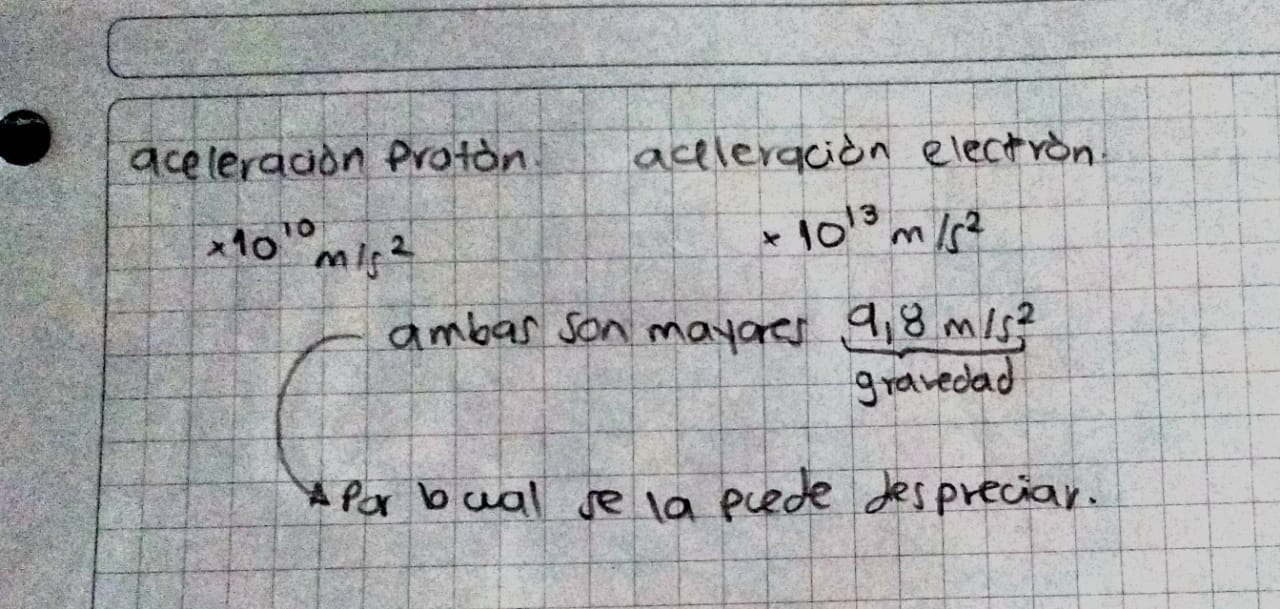 aceleración Protón. aceleración electrón.
×10¹⁰ m/s² × 10¹³ m/s²
ambas son mayores 9,8 m/s²
gravedad
Por lo cual se la puede despreciar.